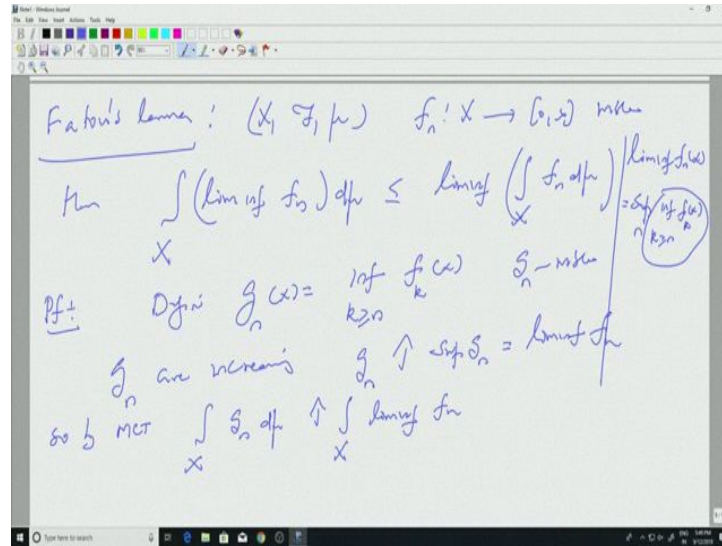 Note1 - Windows Journal
File Edit View Insert Actions Tools Help
Fatou's lemma : (X, F, μ) f_n : X → [0, ∞] msble
then ∫_X (lim inf f_n) dμ ≤ liminf (∫_X f_n dμ)
liminf f_n(x)
= sup_n inf_{k≥n} f_k(x)
Pf: Define g_n(x) = inf_{k≥n} f_k(x) g_n - msble
g_n are increasing g_n ↑ sup g_n = liminf f_n
so by MCT ∫_X g_n dμ ↑ ∫_X liminf f_n
Type here to search